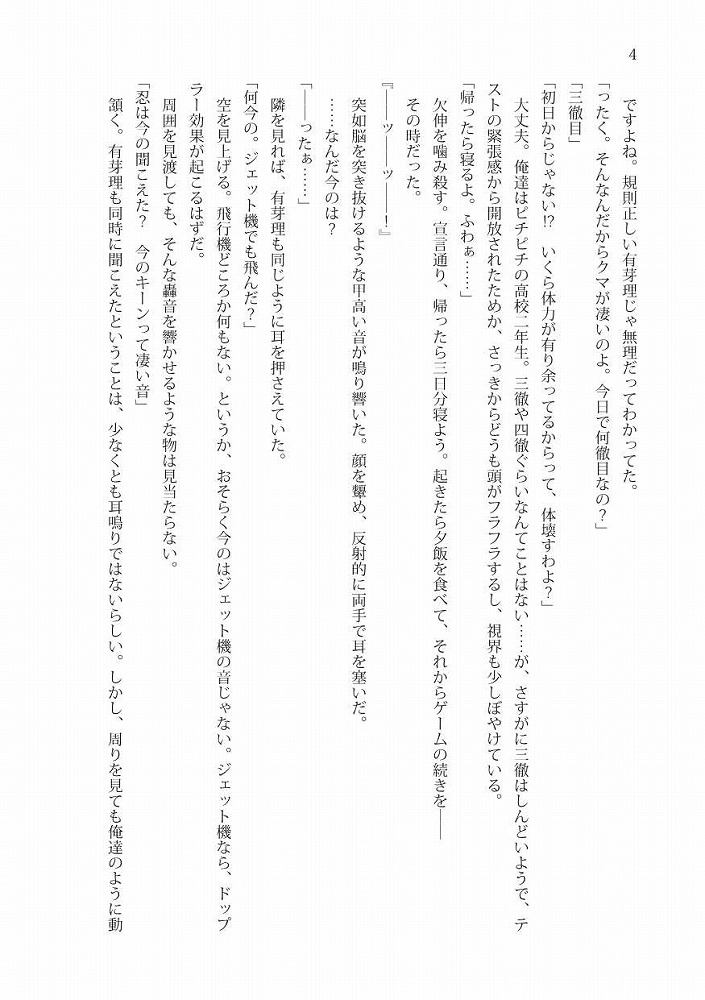 4
ですよね。規則正しい有芽理じゃ無理だってわかってた。
「ったく。そんなんだからクマが凄いのよ。今日で何徹目なの？」
「三徹目」
「初日からじゃない⁉　いくら体力が有り余ってるからって、体壊すわよ？」
大丈夫。俺達はピチピチの高校二年生。三徹や四徹ぐらいなんてことはない……が、さすがに三徹はしんどいようで、テ
ストの緊張感から開放されたためか、さっきからどうも頭がフラフラするし、視界も少しぼやけている。
「帰ったら寝るよ。ふわぁ……」
欠伸を噛み殺す。宣言通り、帰ったら三日分寝よう。起きたら夕飯を食べて、それからゲームの続きを――
その時だった。
『――ッ――ッ――！』
突如脳を突き抜けるような甲高い音が鳴り響いた。顔を顰め、反射的に両手で耳を塞いだ。
……なんだ今のは？
「――ったぁ……」
隣を見れば、有芽理も同じように耳を押さえていた。
「何今の。ジェット機でも飛んだ？」
空を見上げる。飛行機どころか何もない。というか、おそらく今のはジェット機の音じゃない。ジェット機なら、ドップ
ラー効果が起こるはずだ。
周囲を見渡しても、そんな轟音を響かせるような物は見当たらない。
「忍は今の聞こえた？　今のキーンって凄い音」
頷く。有芽理も同時に聞こえたということは、少なくとも耳鳴りではないらしい。しかし、周りを見ても俺達のように動